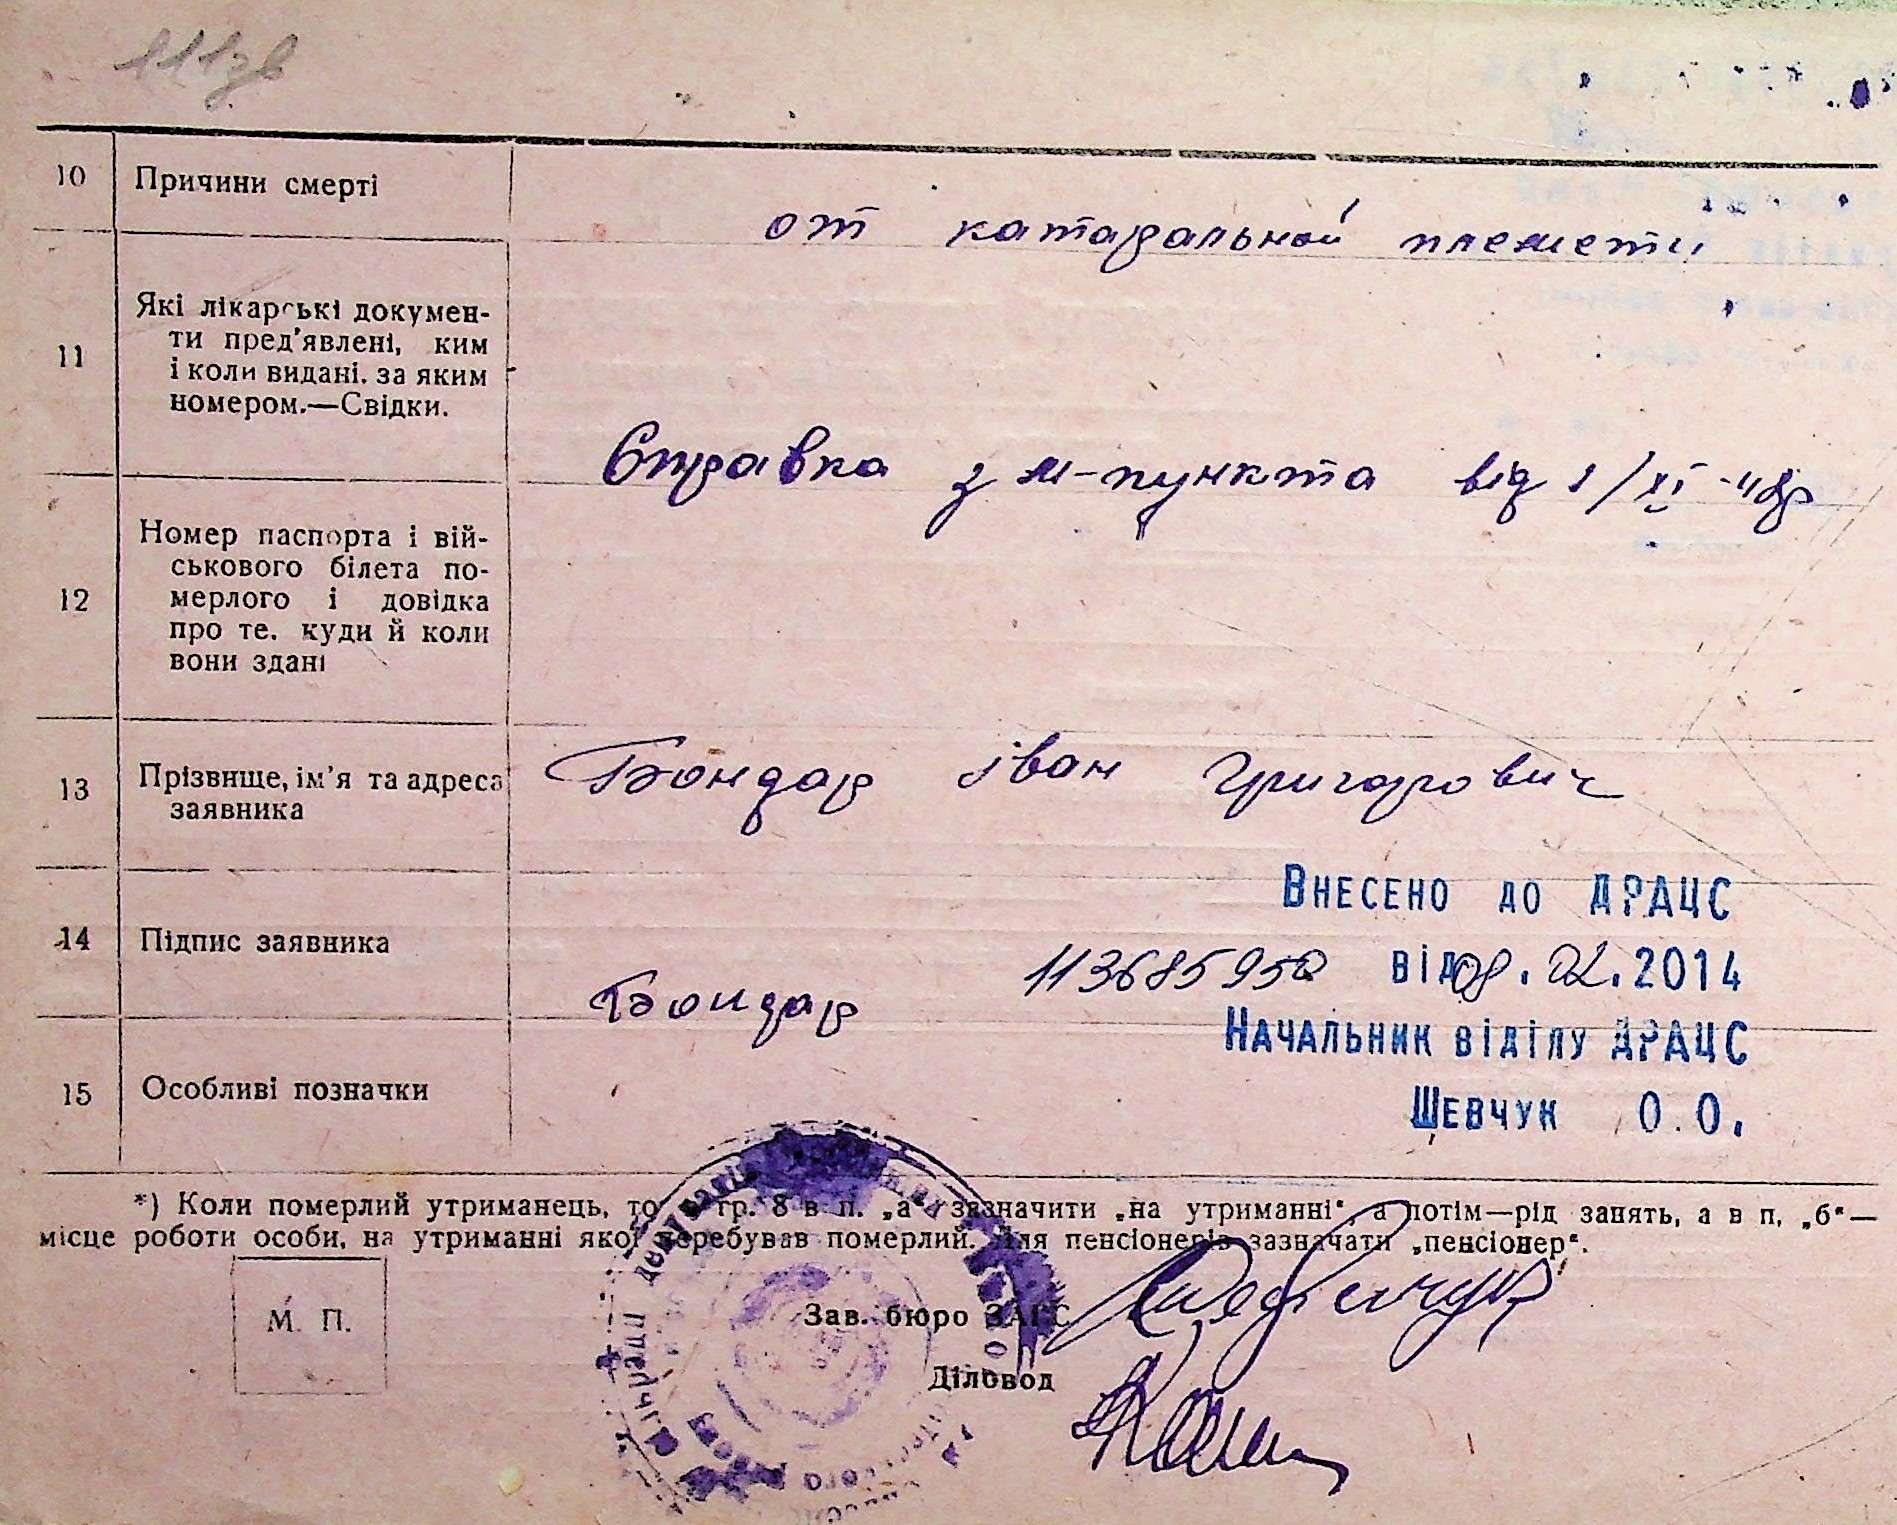 111зв
10 Причини смерті
от катаральной
11 Які лікарські докумен-
ти пред'явлені, ким
і коли видані. за яким
номером.—Свідки.
Справка з м-пункта від 1/XI-48р
12 Номер паспорта і вій-
ськового білета по-
мерлого і довідка
про те. куди й коли
вони здані
13 Прізвище, ім'я та адреса
заявника
Бондар Іван Григорович
Внесено до ДРАЦС
14 Підпис заявника
113685950 від 08.02.2014
Бондар
Начальник відділу ДРАЦС
15 Особливі позначки
Шевчук О.О.
*) Коли померлий утриманець, то в гр. 8 в п. „а" зазначити „на утриманні", а потім—рід занять, а в п. „б"—
місце роботи особи, на утриманні якої перебував померлий. Для пенсіонерів зазначати „пенсіонер".
М. П.
Зав. бюро ЗАГС
Діловод